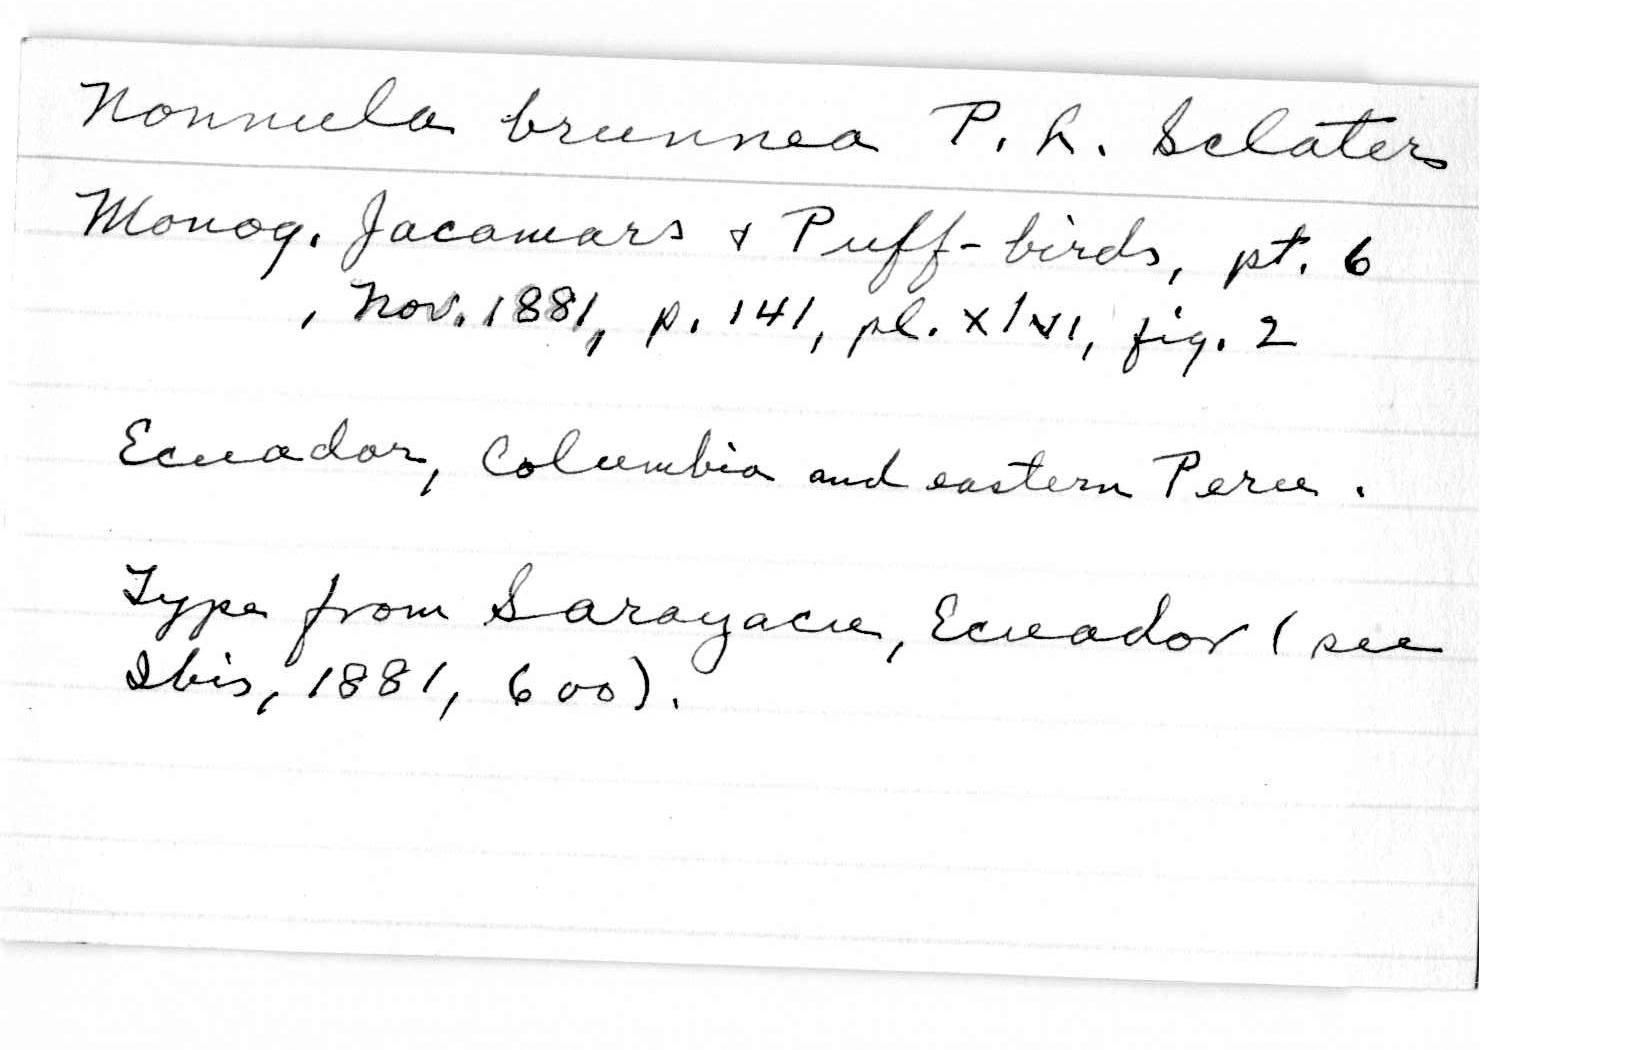 Nonnula brunnea P. L. Sclater
Monog. Jacamars & Puff-birds, pt. 6
, Nov. 1881, p. 141, pl. xlvi, fig. 2
Ecuador, Columbia and eastern Peru.
Type from Sarayacu, Ecuador (see
Ibis, 1881, 600).